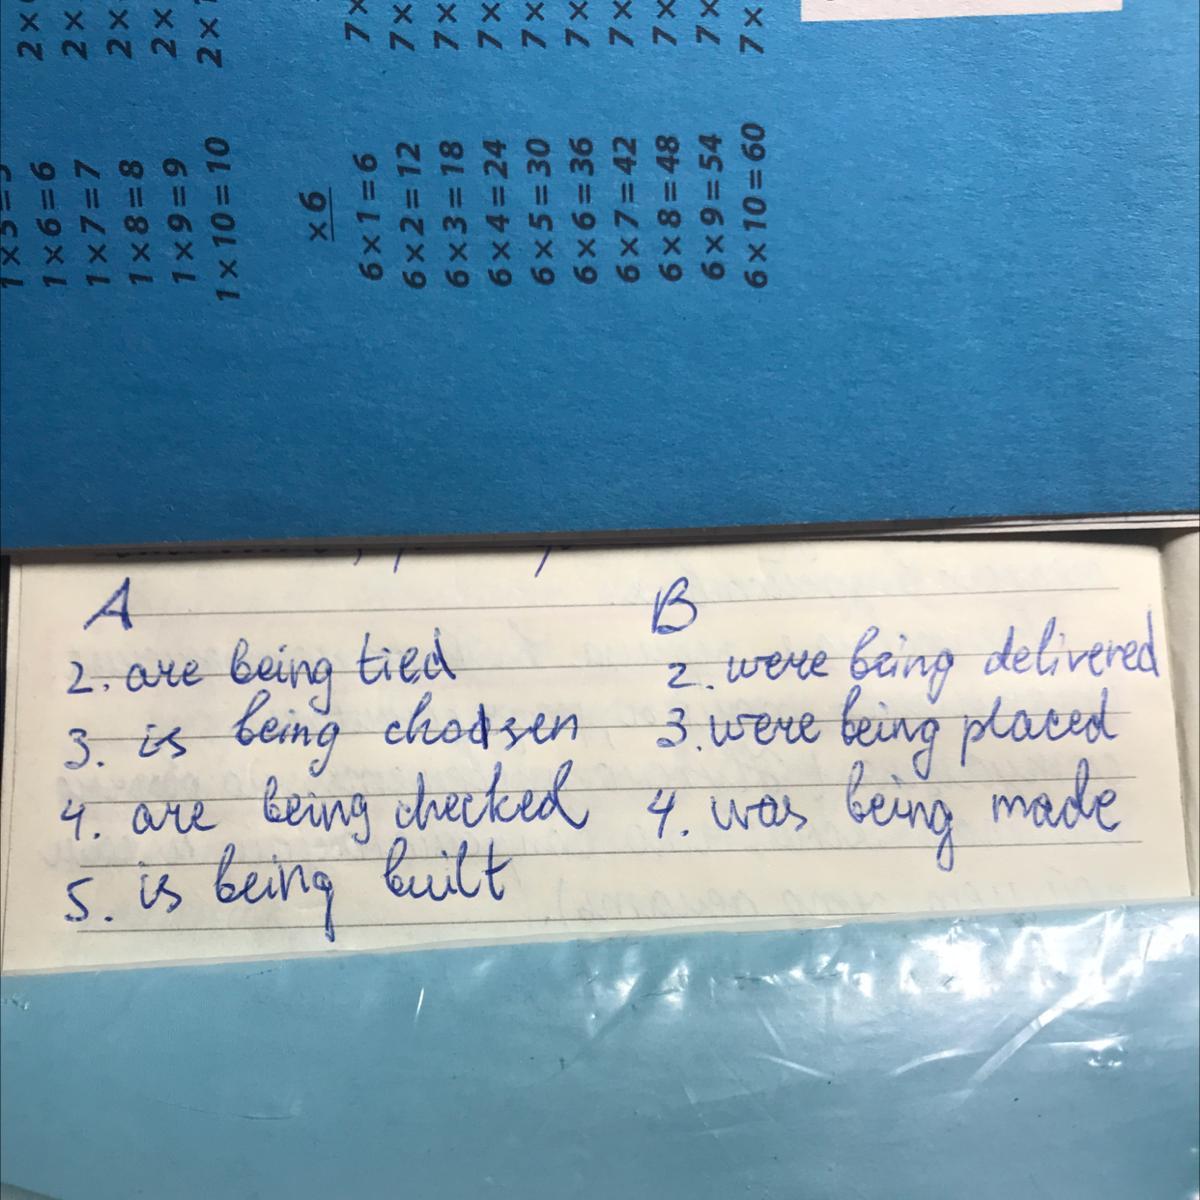 1×5=5
1×6=6
1×7=7
1×8=8
1×9=9
1×10=10
2×
2×
2×
2×
2×
×6
6×1=6
6×2=12
6×3=18
6×4=24
6×5=30
6×6=36
6×7=42
6×8=48
6×9=54
6×10=60
7×
7×
7×
7×
7×
7×
7×
7×
7×
7×
A
2. are being tied
3. is being choosen
4. are being checked
5. is being built
B
2. were being delivered
3. were being placed
4. was being made